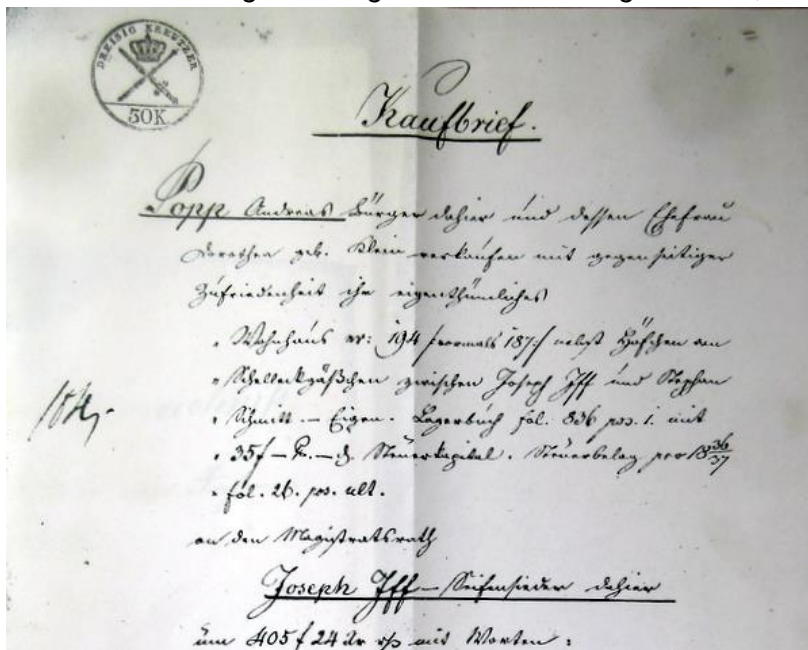 DREISIG KREUTZER
30K.
Kaufbrief.
Popp Andreas Bürger dahier und dessen Ehefrau
Dorothea geb. Klein verkaufen mit gegenseitiger
Zufriedenheit ihr eigenthümliches
" Wohnhaus nr: 194 /:vormals 187:/ nebst Höfchen am
" Schelleckgäßchen zwischen Joseph Iff und Stephan
" Schmitt. – Eigen. Lagerbuch fol. 836 pos. 1. mit
" 35f – K. – d. Steuerkapital. Steuerbelag pro 18 36/37
" fol. 26. pos. ult.
an den Magistratsrath
Joseph Iff – Seifensieder dahier
um 405 f 24 xr mit Worten: